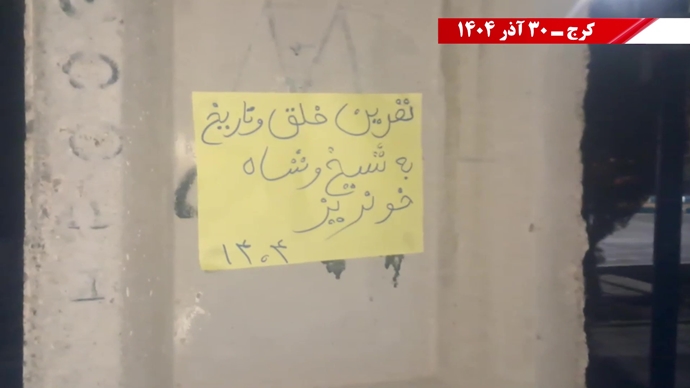 کرج ــ ۳۰ آذر ۱۴۰۴
نفرین خلق و تاریخ
به شیخ و شاه
خونریز
۱۴۰۴